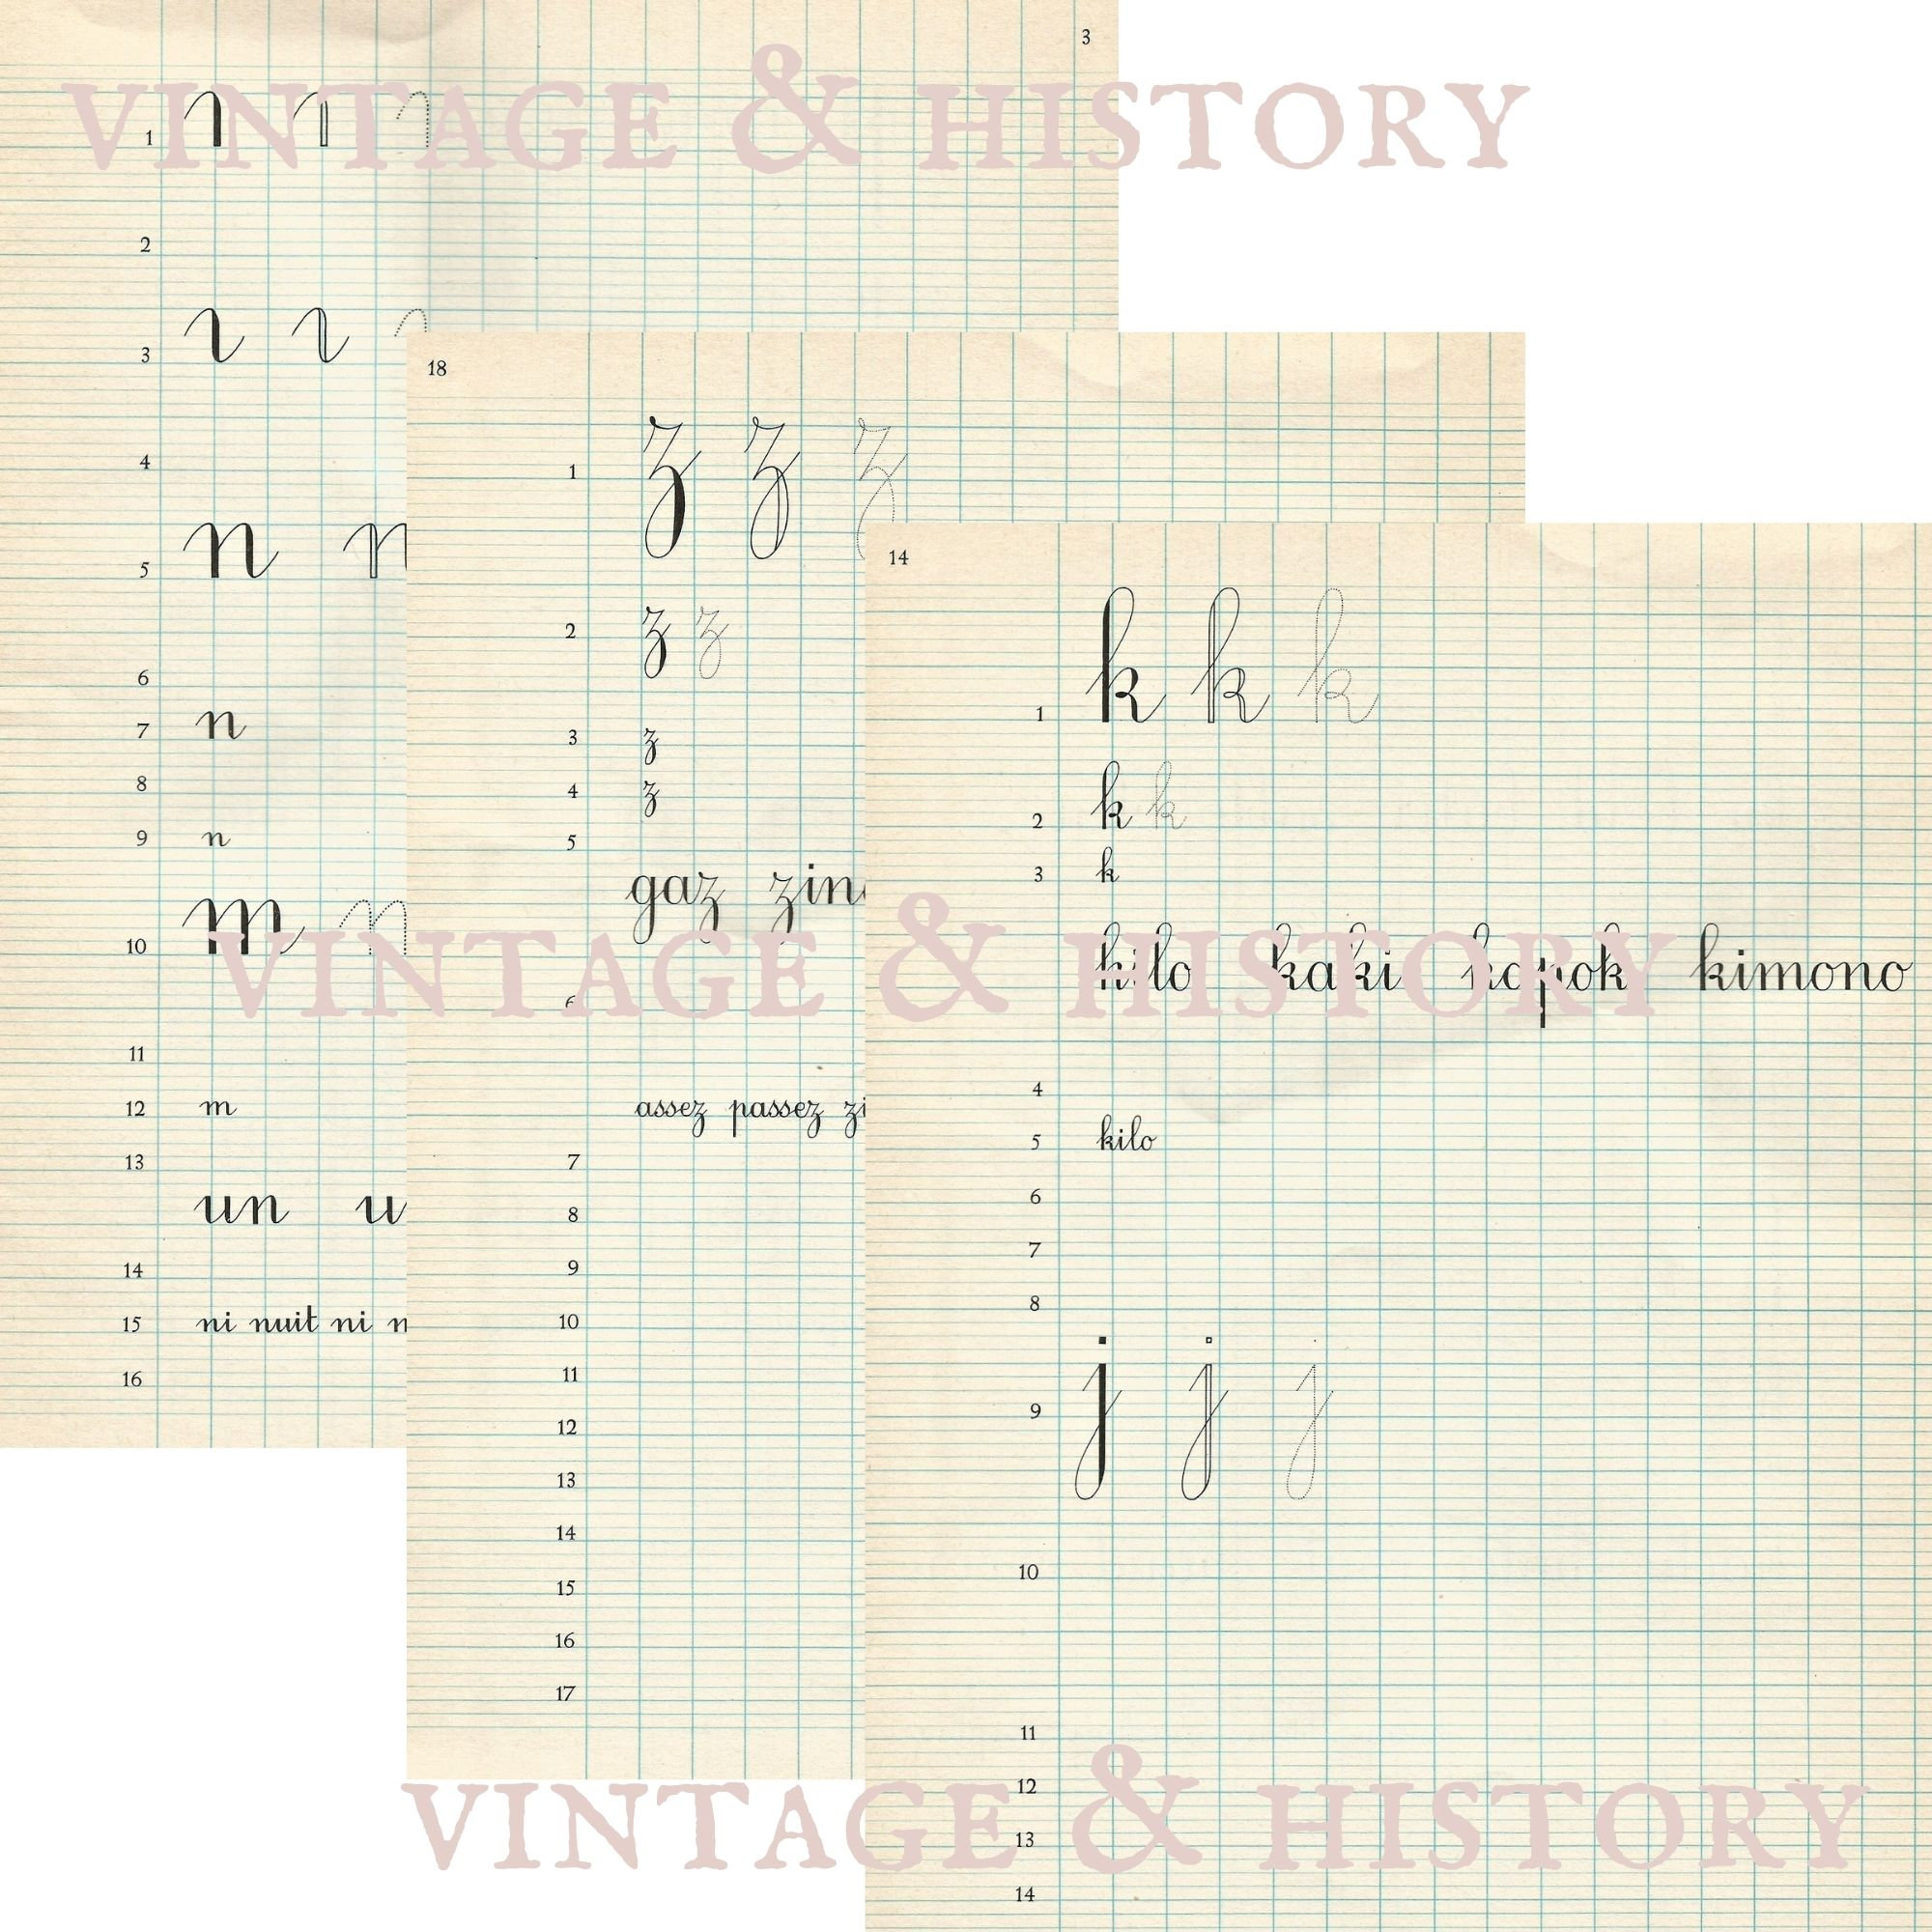 VINTAGE & HISTORY
3
1
2
3
4
5 n n
6
7 n
8
9 n
10 m
11
12 m
13
un
14
15 ni nuit ni
16
18
1 z z z
2 z z
3 z
4 z
5
gaz
6
assez passez
7
8
9
10
11
12
13
14
15
16
17
14
1 k k k
2 k k
3 k
kilo kaki kapok kimono
VINTAGE & HISTORY
4
5 kilo
6
7
8
9 j j j
10
11
12
13
14
VINTAGE & HISTORY